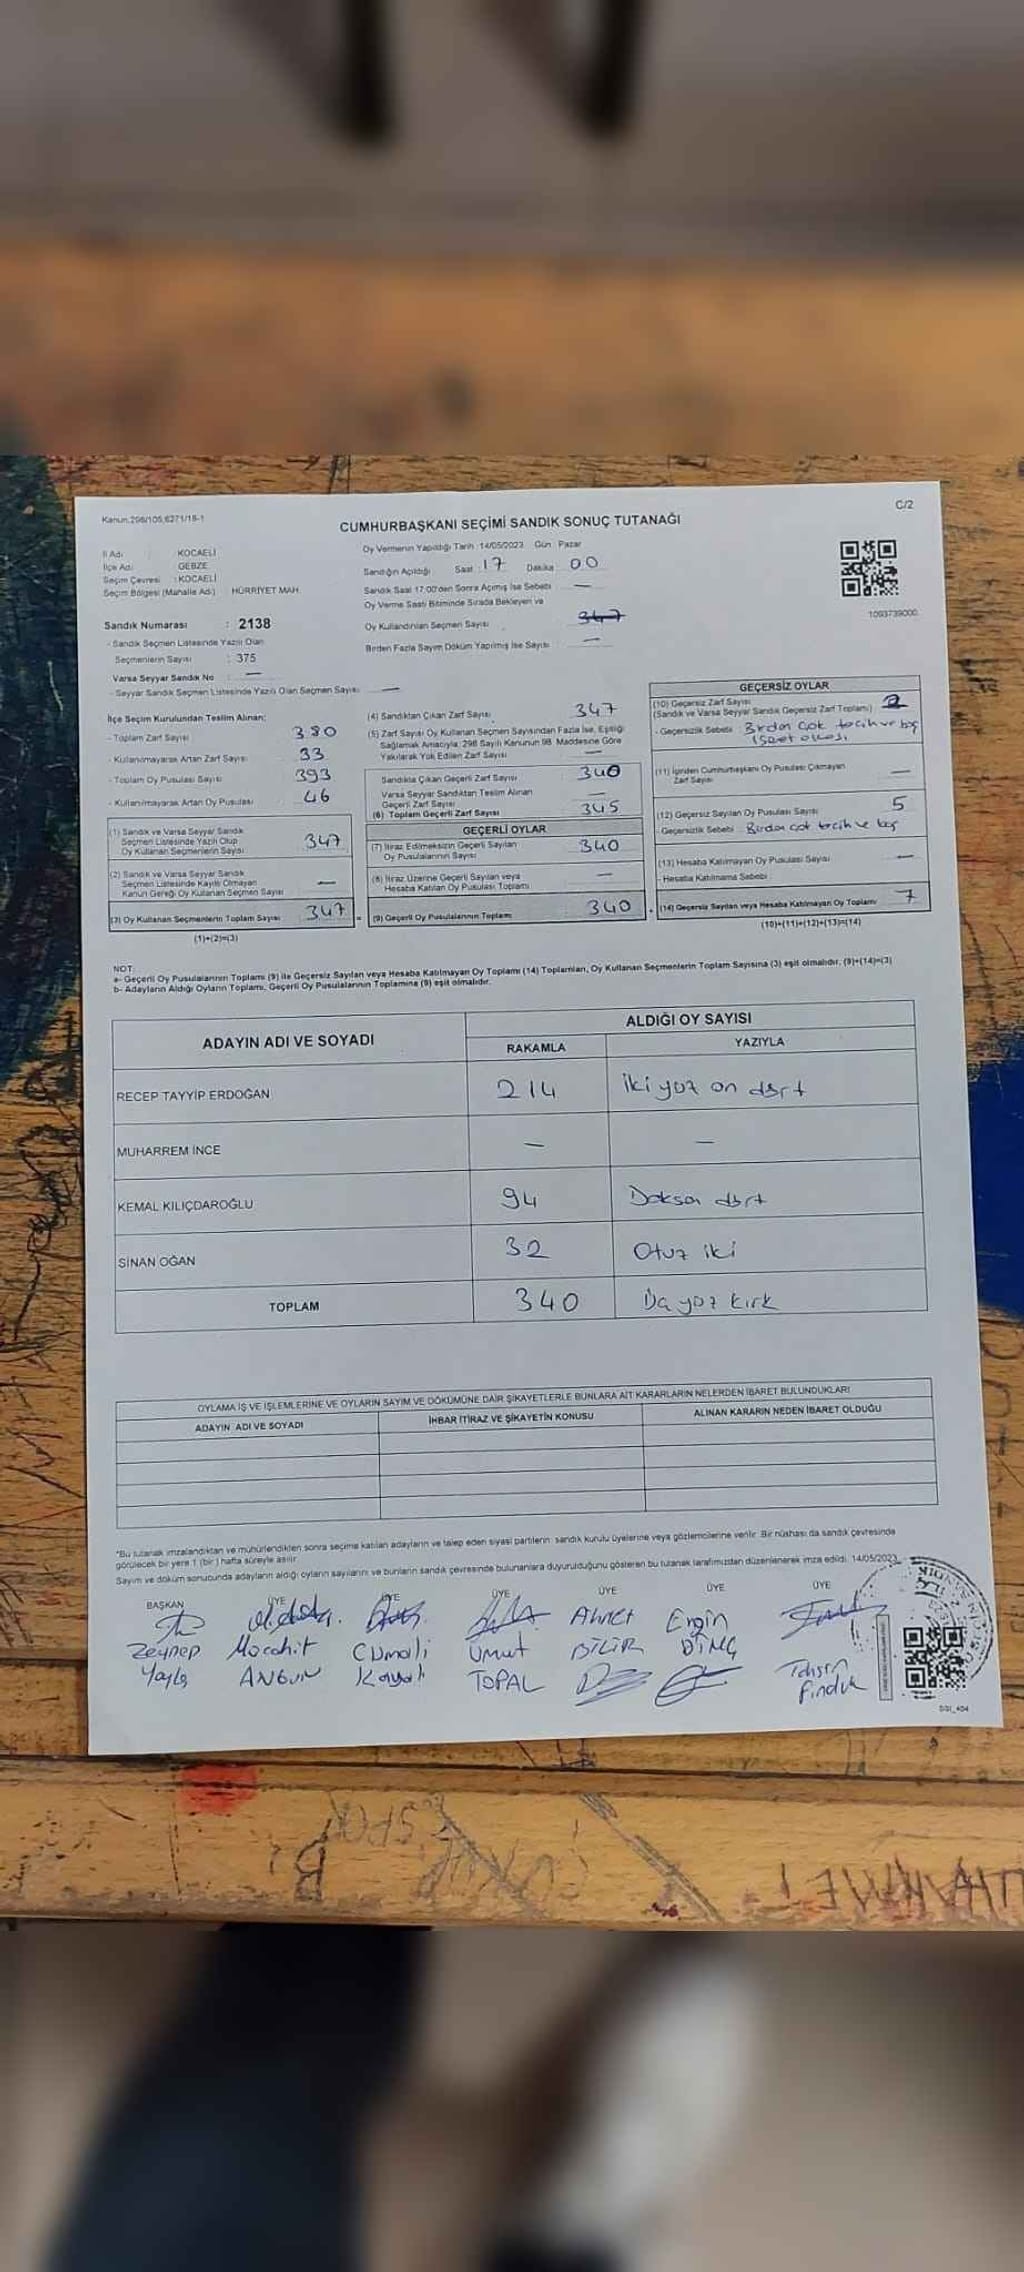 Kanun:298/105,6271/18-1
C/2
CUMHURBAŞKANI SEÇİMİ SANDIK SONUÇ TUTANAĞI
İl Adı : KOCAELİ
İlçe Adı : GEBZE
Seçim Çevresi : KOCAELİ
Seçim Bölgesi (Mahalle Adı) : HÜRRİYET MAH.
Sandık Numarası : 2138
- Sandık Seçmen Listesinde Yazılı Olan
Seçmenlerin Sayısı : 375
Varsa Seyyar Sandık No : —
- Seyyar Sandık Seçmen Listesinde Yazılı Olan Seçmen Sayısı —
Oy Vermenin Yapıldığı Tarih :14/05/2023 Gün : Pazar
Sandığın Açıldığı Saat : 17 Dakika : 00
Sandık Saat 17:00'den Sonra Açımış İse Sebebi : —
Oy Verme Saati Bitiminde Sırada Bekleyen ve
Oy Kullandırılan Seçmen Sayısı : 347
Birden Fazla Sayım Döküm Yapılmış İse Sayısı : —
1093739000
İlçe Seçim Kurulundan Teslim Alınan:
- Toplam Zarf Sayısı 380
- Kullanılmayarak Artan Zarf Sayısı 33
- Toplam Oy Pusulası Sayısı 393
- Kullanılmayarak Artan Oy Pusulası 46
(1) Sandık ve Varsa Seyyar Sandık
Seçmen Listesinde Yazılı Olup
Oy Kullanan Seçmenlerin Sayısı 347
(2) Sandık ve Varsa Seyyar Sandık
Seçmen Listesinde Kayıtlı Olmayan
Kanun Gereği Oy Kullanan Seçmen Sayısı —
(3) Oy Kullanan Seçmenlerin Toplam Sayısı 347
(1)+(2)=(3)
(4) Sandıktan Çıkan Zarf Sayısı 347
(5) Zarf Sayısı Oy Kullanan Seçmen Sayısından Fazla İse, Eşitliği
Sağlamak Amacıyla; 298 Sayılı Kanunun 98. Maddesine Göre
Yakılarak Yok Edilen Zarf Sayısı —
Sandıkta Çıkan Geçerli Zarf Sayısı 340
Varsa Seyyar Sandıktan Teslim Alınan
Geçerli Zarf Sayısı —
(6) Toplam Geçerli Zarf Sayısı 345
GEÇERLİ OYLAR
(7) İtiraz Edilmeksizin Geçerli Sayılan
Oy Pusulalarının Sayısı 340
(8) İtiraz Üzerine Geçerli Sayılan veya
Hesaba Katılan Oy Pusulası Toplamı —
(9) Geçerli Oy Pusulalarının Toplamı 340
GEÇERSİZ OYLAR
(10) Geçersiz Zarf Sayısı 2
(Sandık ve Varsa Seyyar Sandık Geçersiz Zarf Toplamı)
- Geçersizlik Sebebi : Birden çok tercih ve boş
(11) İçinden Cumhurbaşkanı Oy Pusulası Çıkmayan
Zarf Sayısı —
(12) Geçersiz Sayılan Oy Pusulası Sayısı 5
- Geçersizlik Sebebi : Birden çok tercih ve boş
(13) Hesaba Katılmayan Oy Pusulası Sayısı —
- Hesaba Katılmama Sebebi :
(14) Geçersiz Sayılan veya Hesaba Katılmayan Oy Toplamı 7
(10)+(11)+(12)+(13)=(14)
NOT:
a- Geçerli Oy Pusulalarının Toplamı (9) ile Geçersiz Sayılan veya Hesaba Katılmayan Oy Toplamı (14) Toplamları, Oy Kullanan Seçmenlerin Toplam Sayısına (3) eşit olmalıdır. (9)+(14)=(3)
b- Adayların Aldığı Oyların Toplamı, Geçerli Oy Pusulalarının Toplamına (9) eşit olmalıdır.
ADAYIN ADI VE SOYADI
ALDIĞI OY SAYISI
RAKAMLA YAZIYLA
RECEP TAYYİP ERDOĞAN 214 İki yüz on dört
MUHARREM İNCE — —
KEMAL KILIÇDAROĞLU 94 Doksan dört
SİNAN OĞAN 32 Otuz iki
TOPLAM 340 Üç yüz kırk
OYLAMA İŞ VE İŞLEMLERİNE VE OYLARIN SAYIM VE DÖKÜMÜNE DAİR ŞİKAYETLERLE BUNLARA AİT KARARLARIN NELERDEN İBARET BULUNDUKLARI
ADAYIN ADI VE SOYADI İHBAR İTİRAZ VE ŞİKAYETİN KONUSU ALINAN KARARIN NEDEN İBARET OLDUĞU
*Bu tutanak imzalandıktan ve mühürlendikten sonra seçime katılan adayların ve talep eden siyasi partilerin sandık kurulu üyelerine veya gözlemcilerine verilir. Bir nüshası da sandık çevresinde
görülecek bir yere 1 (bir) hafta süreyle asılır.
Sayım ve döküm sonucunda adayların aldığı oyların sayılarını ve bunların sandık çevresinde bulunanlara duyurulduğunu gösteren bu tutanak tarafımızdan düzenlenerek imza edildi. 14/05/2023
BAŞKAN ÜYE ÜYE ÜYE ÜYE ÜYE ÜYE
Zeynep Mücahit Cumali Umut Ahmet Ergin Tahsin
Yayla ANGUN TOPAL BİLİR DİNÇ Fındık